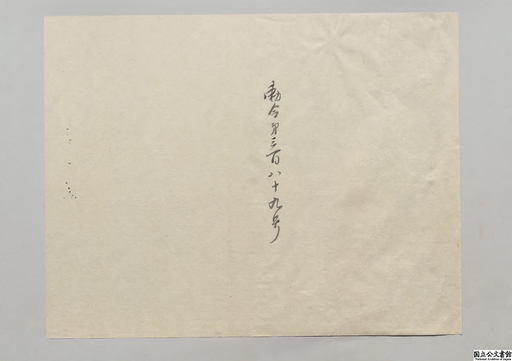 勅令第三百八十九号
国立公文書館
National Archives of Japan